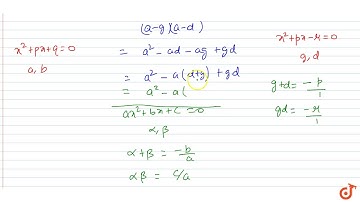 (a-g)(a-d)
x²+px+q=0
a, b
= a² - ad - ag + gd
= a² - a(d+g) + gd
= a² - a(
ax²+bx+c=0
α, β
α+β = -b/a
αβ = c/a
x²+px-r=0
g, d
g+d= -p/1
gd= -r/1